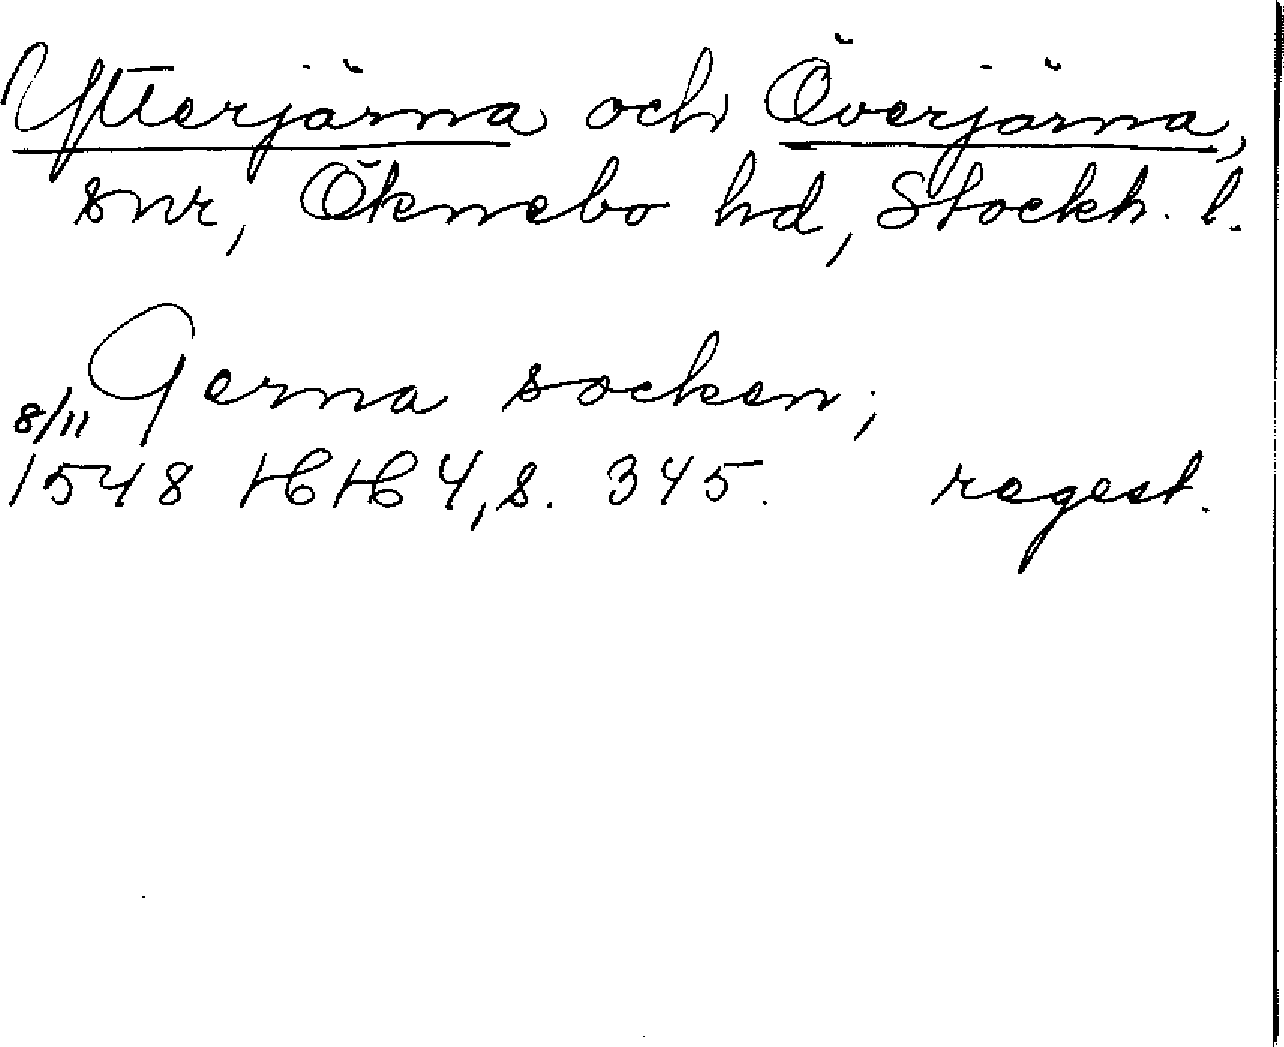 Ytterjärna och Överjärna,
snr, Öknebo hd, Stockh. l.
Gerna socken;
8/11
1548 HH 4, s. 345. regest.